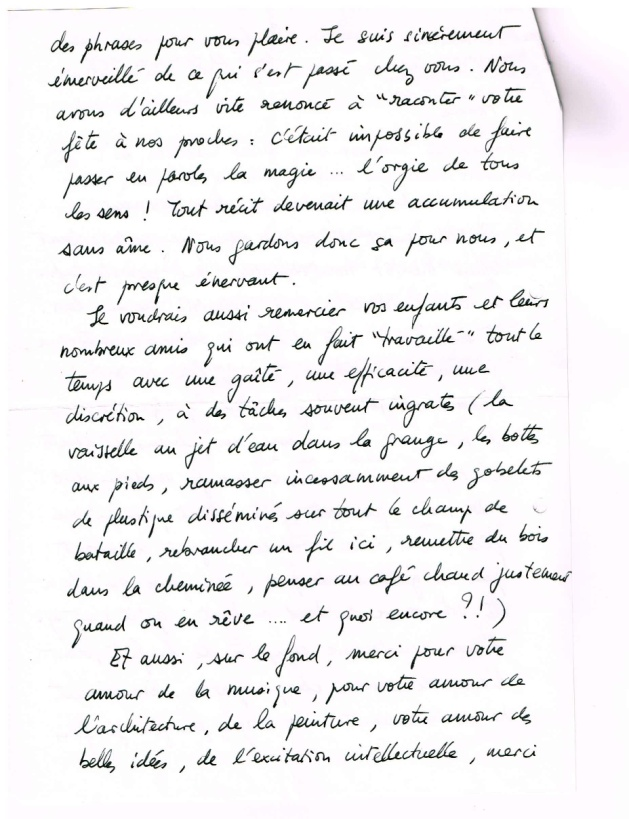 des phrases pour vous plaire. Je suis sincèrement
émerveillé de ce qui s'est passé chez vous. Nous
avons d'ailleurs vite renoncé à "raconter" votre
fête à nos proches : c'était impossible de faire
passer en paroles la magie ... l'orgie de tous
les sens ! Tout récit devenait une accumulation
sans âme. Nous gardons donc ça pour nous, et
c'est presque énervant.
Je voudrais aussi remercier vos enfants et leurs
nombreux amis qui ont en fait "travaillé" tout le
temps avec une gaîté, une efficacité, une
discrétion, à des tâches souvent ingrates (la
vaisselle au jet d'eau dans la grange, les bottes
aux pieds, ramasser incessamment des gobelets
de plastique disséminés sur tout le champ de
bataille, rebrancher un fil ici, remettre du bois
dans la cheminée, penser au café chaud justement
quand on en rêve .... et quoi encore ?!)
Et aussi, sur le fond, merci pour votre
amour de la musique, pour votre amour de
l'architecture, de la peinture, votre amour des
belles idées, de l'excitation intellectuelle, merci